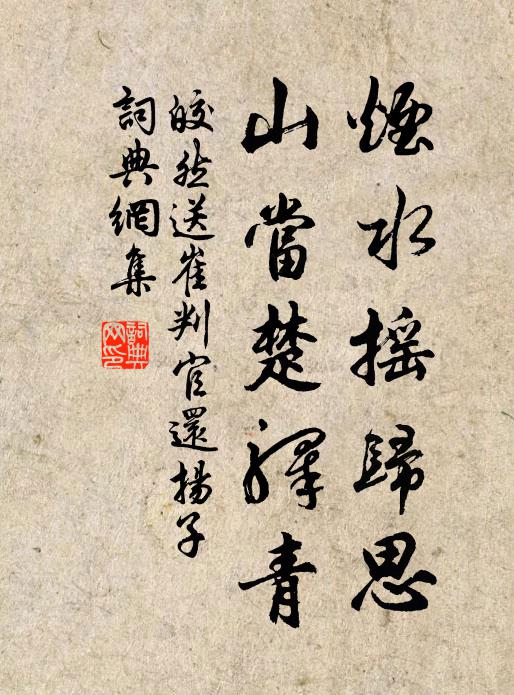 煙水摇歸思
山當楚驛青
皎然送崔判官還揚子
詞典網集
詞典網印